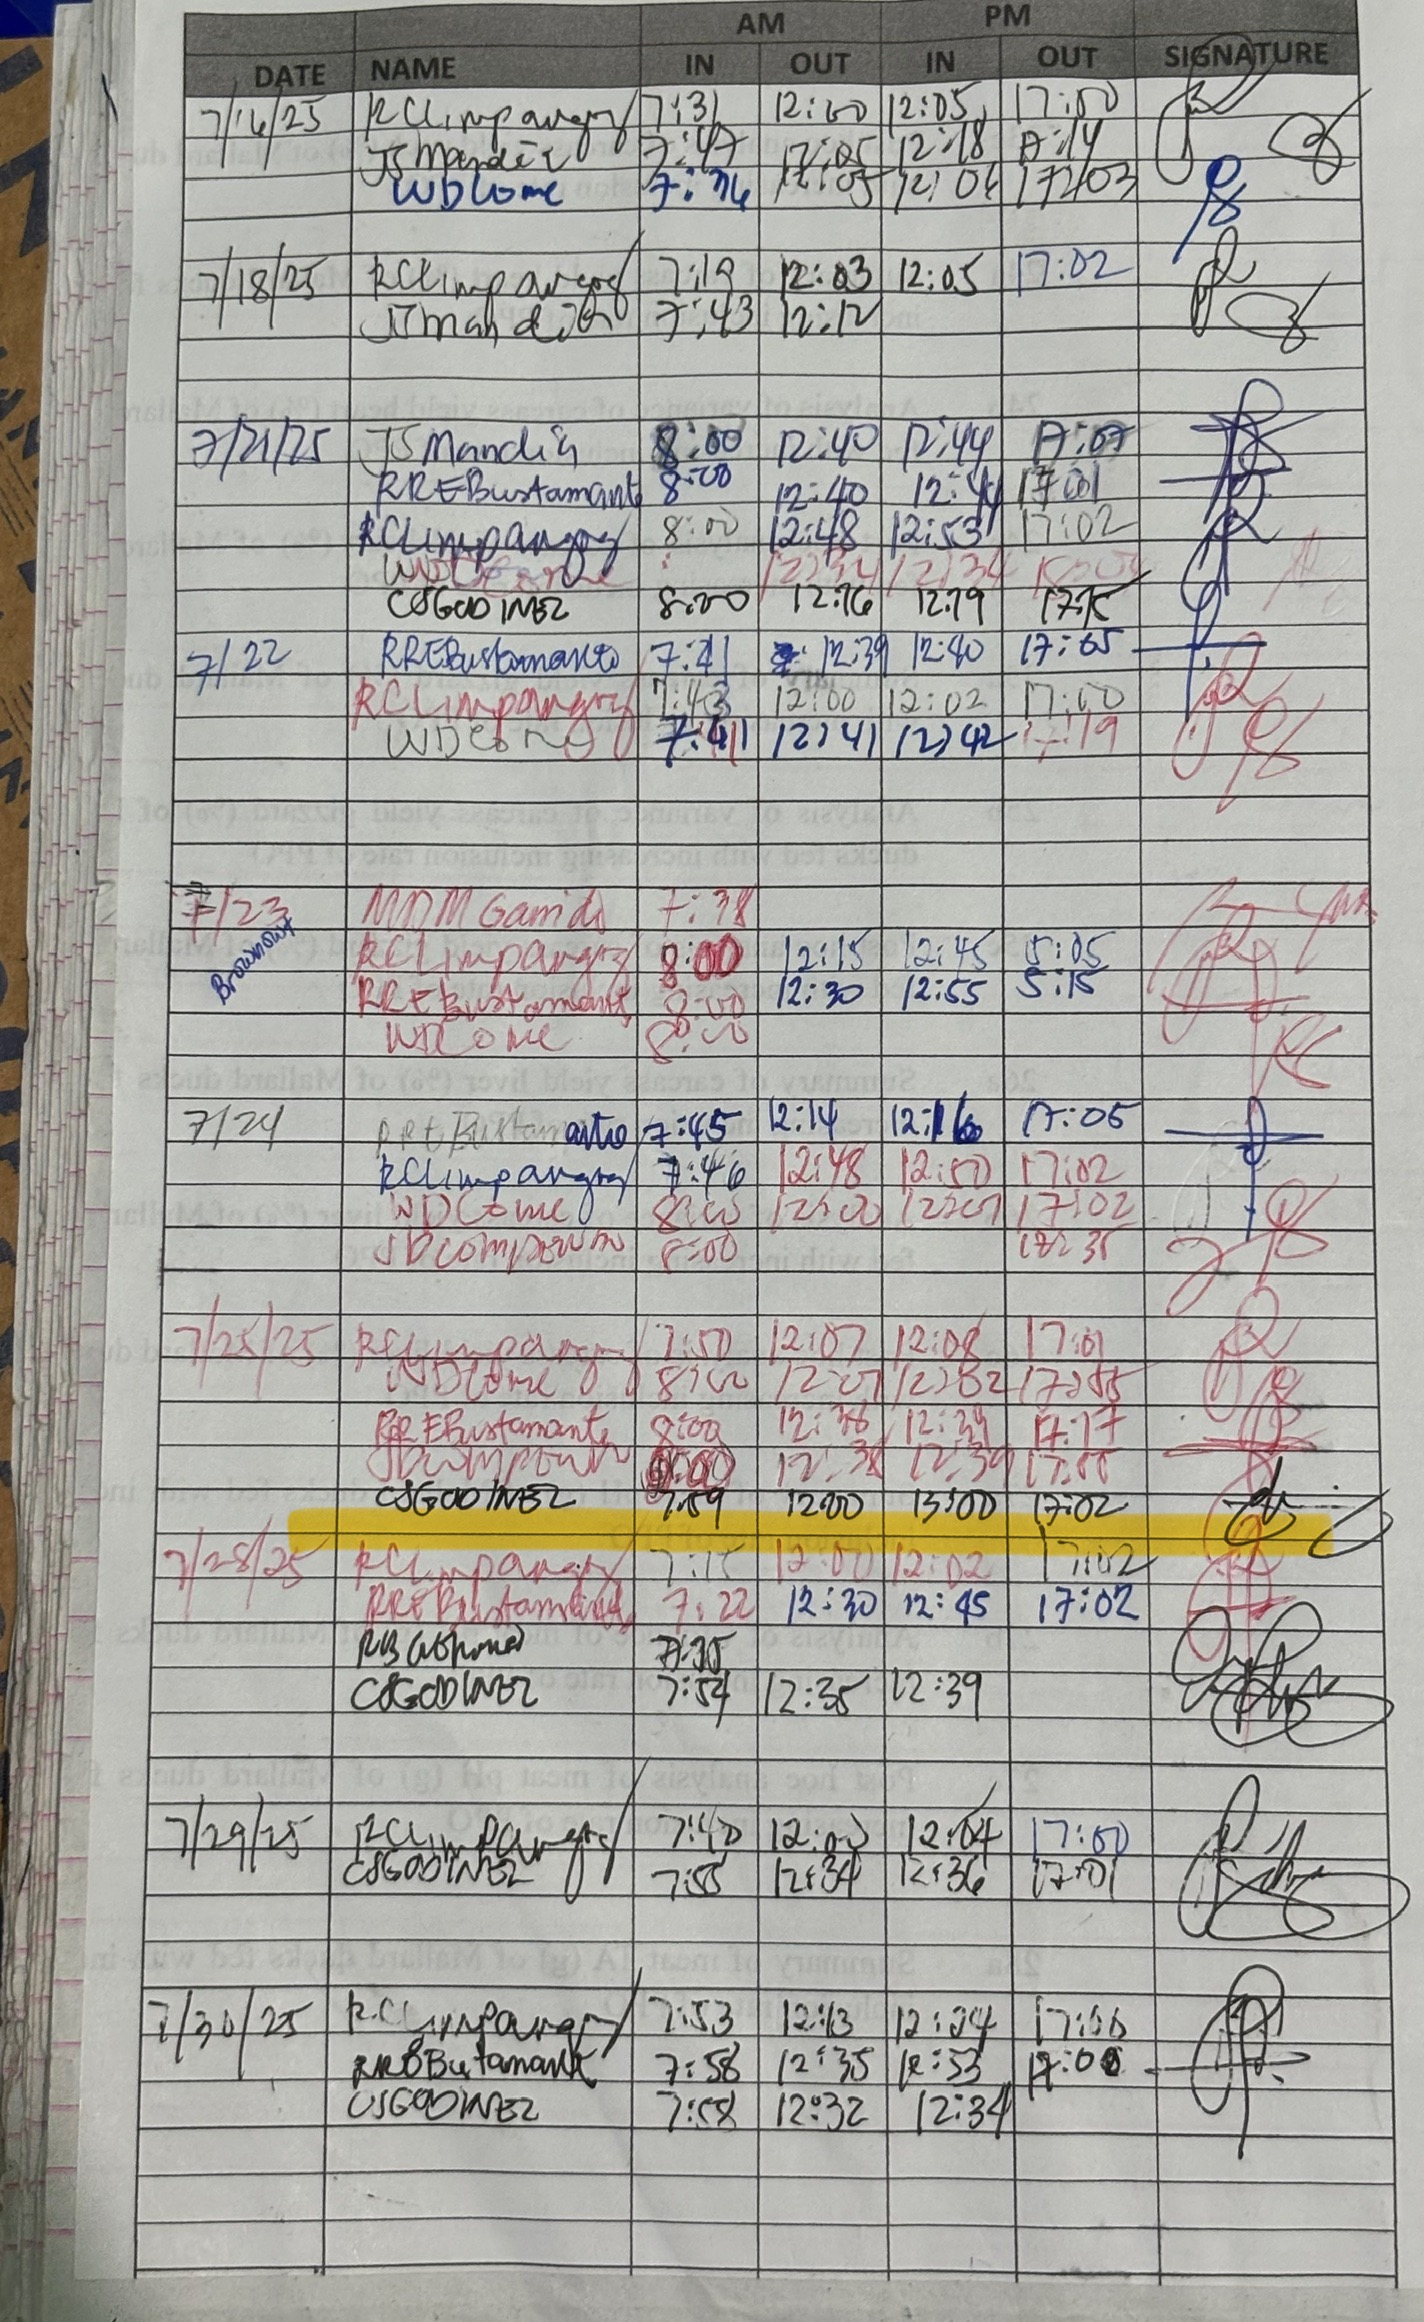 AM PM
DATE NAME IN OUT IN OUT SIGNATURE
7/16/25 RCLimpangog 7:31 12:00 12:05 17:00
JSMandia 7:47 12:05 12:18 17:14
WDCome 12:05 17:03
7/18/25 RCLimpangog 7:19 12:03 12:05 17:02
JSMandia 7:43 12:12
7/21/25 JSMandia 8:00 12:40 12:44 17:07
RREBustamante 8:00 12:40 12:44 17:01
RCLimpangog 8:00 12:48 12:53 17:02
WDCome 12:34 12:34
CSGODINEZ 8:00 12:16 12:19 17:15
7/22 RREBustamante 7:41 12:39 12:40 17:05
RCLimpangog 7:43 12:00 12:02 17:00
WDCome 7:41 12:41 12:42 17:19
7/23 MDMGarrido 7:38
Brownout RCLimpangog 8:00 12:15 12:45 5:05
RREBustamante 8:00 12:30 12:55 5:15
WDCome 8:00
7/24 RREBustamante 7:45 12:14 12:16 17:05
RCLimpangog 7:46 12:48 12:50 17:02
WDCome 8:00 12:00 12:01 17:02
8:00
7/25/25 RCLimpangog 7:50 12:07 12:08 17:01
WDCome 8:00 12:01 12:02
RREBustamante 8:00 12:38 12:39 17:17
12:38 12:39
CSGODINEZ 7:59 12:00 13:00 17:02
7/28/25 RCLimpangog 7:15 12:00 12:02 17:02
RREBustamante 7:22 12:30 12:45 17:02
CSGODINEZ 7:54 12:35 12:39
7/29/25 RCLimpangog 7:40 12:00 12:04 17:00
CSGODINEZ 7:55 12:34 12:36 17:01
7/30/25 RCLimpangog 7:53 12:13 12:24 17:00
RREBustamante 7:58 12:35 12:53 17:00
CSGODINEZ 7:58 12:32 12:34